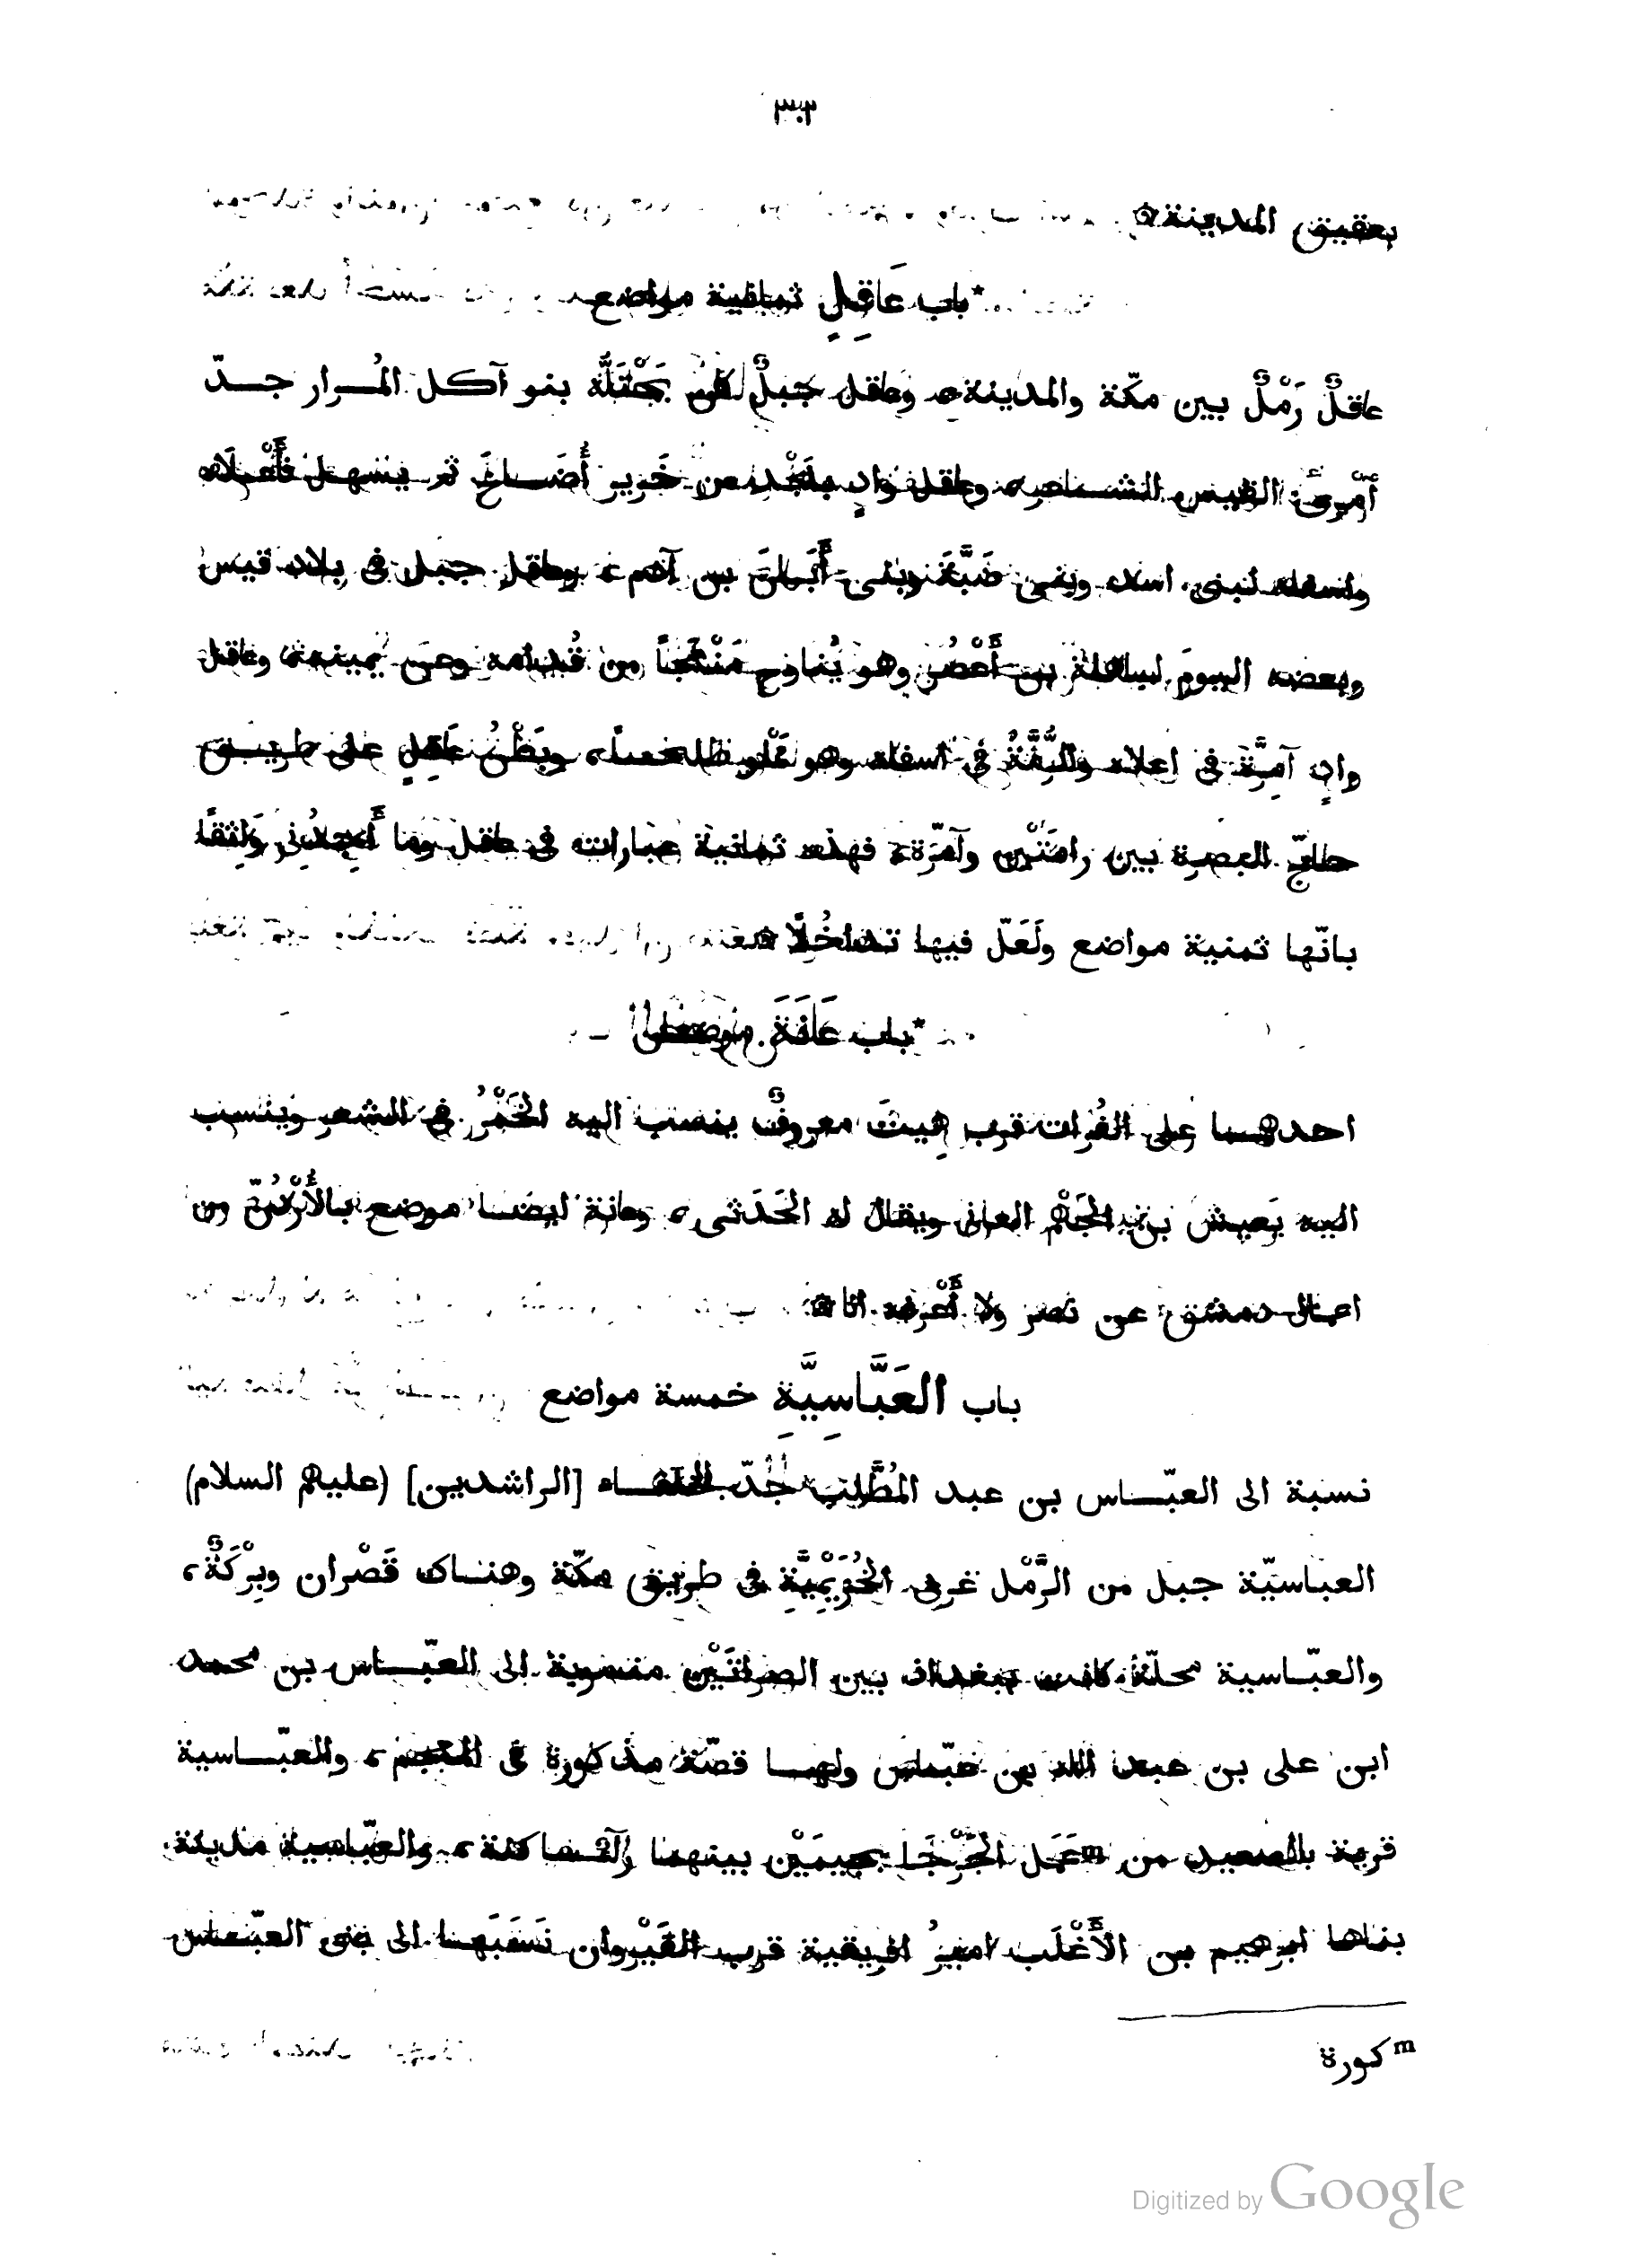 ٣٠٢
بعقيق المدينة ۞
*باب عَاقِلٍ ثمانية مواضع
عاقلٌ رَمْلٌ بين مكّة والمدينة، وعاقل جبلٌ كان يَحْتَلُّه بنو آكل المُرار جدّ
القيس الشاعر، وعاقل وادٍ بنَجْد من خَرير أُضَاخَ ثم يسهل فأَعْلاه
واسفله لبنى اسد وبنى ضَبَّةَ وبنى أَبَان بن دارم، وعاقل جبل فى بلاد قيس
وبعضه اليومَ لباهلة بن أَعْصُر وهو يُناوح مَنْعِجًا من قُدّامه وعن يمينه، وعاقل
وادٍ فى اعلاه والرُّمَّةُ فى اسفله وهو مملو، وبَطْنُ عَاقِلٍ على طريق
حاجّ البصرة بين رامَتَيْن وآمرّة، فهذه ثمانية عبارات فى عاقل وما أَجِدُنى وَاثِقًا
بانّها ثمنية مواضع ولَعَلّ فيها تداخُلًا ۞
*باب عَانَةَ موضعان
احدهما على الفُرات قرب هِيتَ معروفٌ ينسب اليه الخَمْرُ فى الشعر وينسب
اليه يَعيش بن الجَهْم العانى ويقال له الحَدَثى، وعانة ايضا موضع بالأُرْدُنّ من
اعمال دمشق عن نصر ولا أَعْرفه انا ۞
باب العَبَّاسِيَّةِ خمسة مواضع
نسبة الى العبّاس بن عبد المُطَّلِب جَدّ الخلفاء [الراشدين] (عليهم السلام)
العباسيّة جبل من الرَّمْل غربى الخُزَيْمِيَّةِ فى طريق مكّة وهناك قَصْران وبِرْكَةٌ،
والعبّاسية محلّة كانت ببغداد بين الصراتَيْن منسوبة الى العبّاس بن محمد
ابن على بن عبد الله بن عبّاس ولها قصّة مذكورة فى المعجم، والعبّاسية
قرية بالصعيد من ᵐعَمَل الجَرْجَا بجيمَيْن بينهما رآء ساكنة، والعبّاسية مدينة
بناها ابرهيم بن الأَغْلَب اميرُ افريقية قرب القَيْروان نَسَبَها الى بنى العبّاس
ᵐ كورة
Digitized by Google